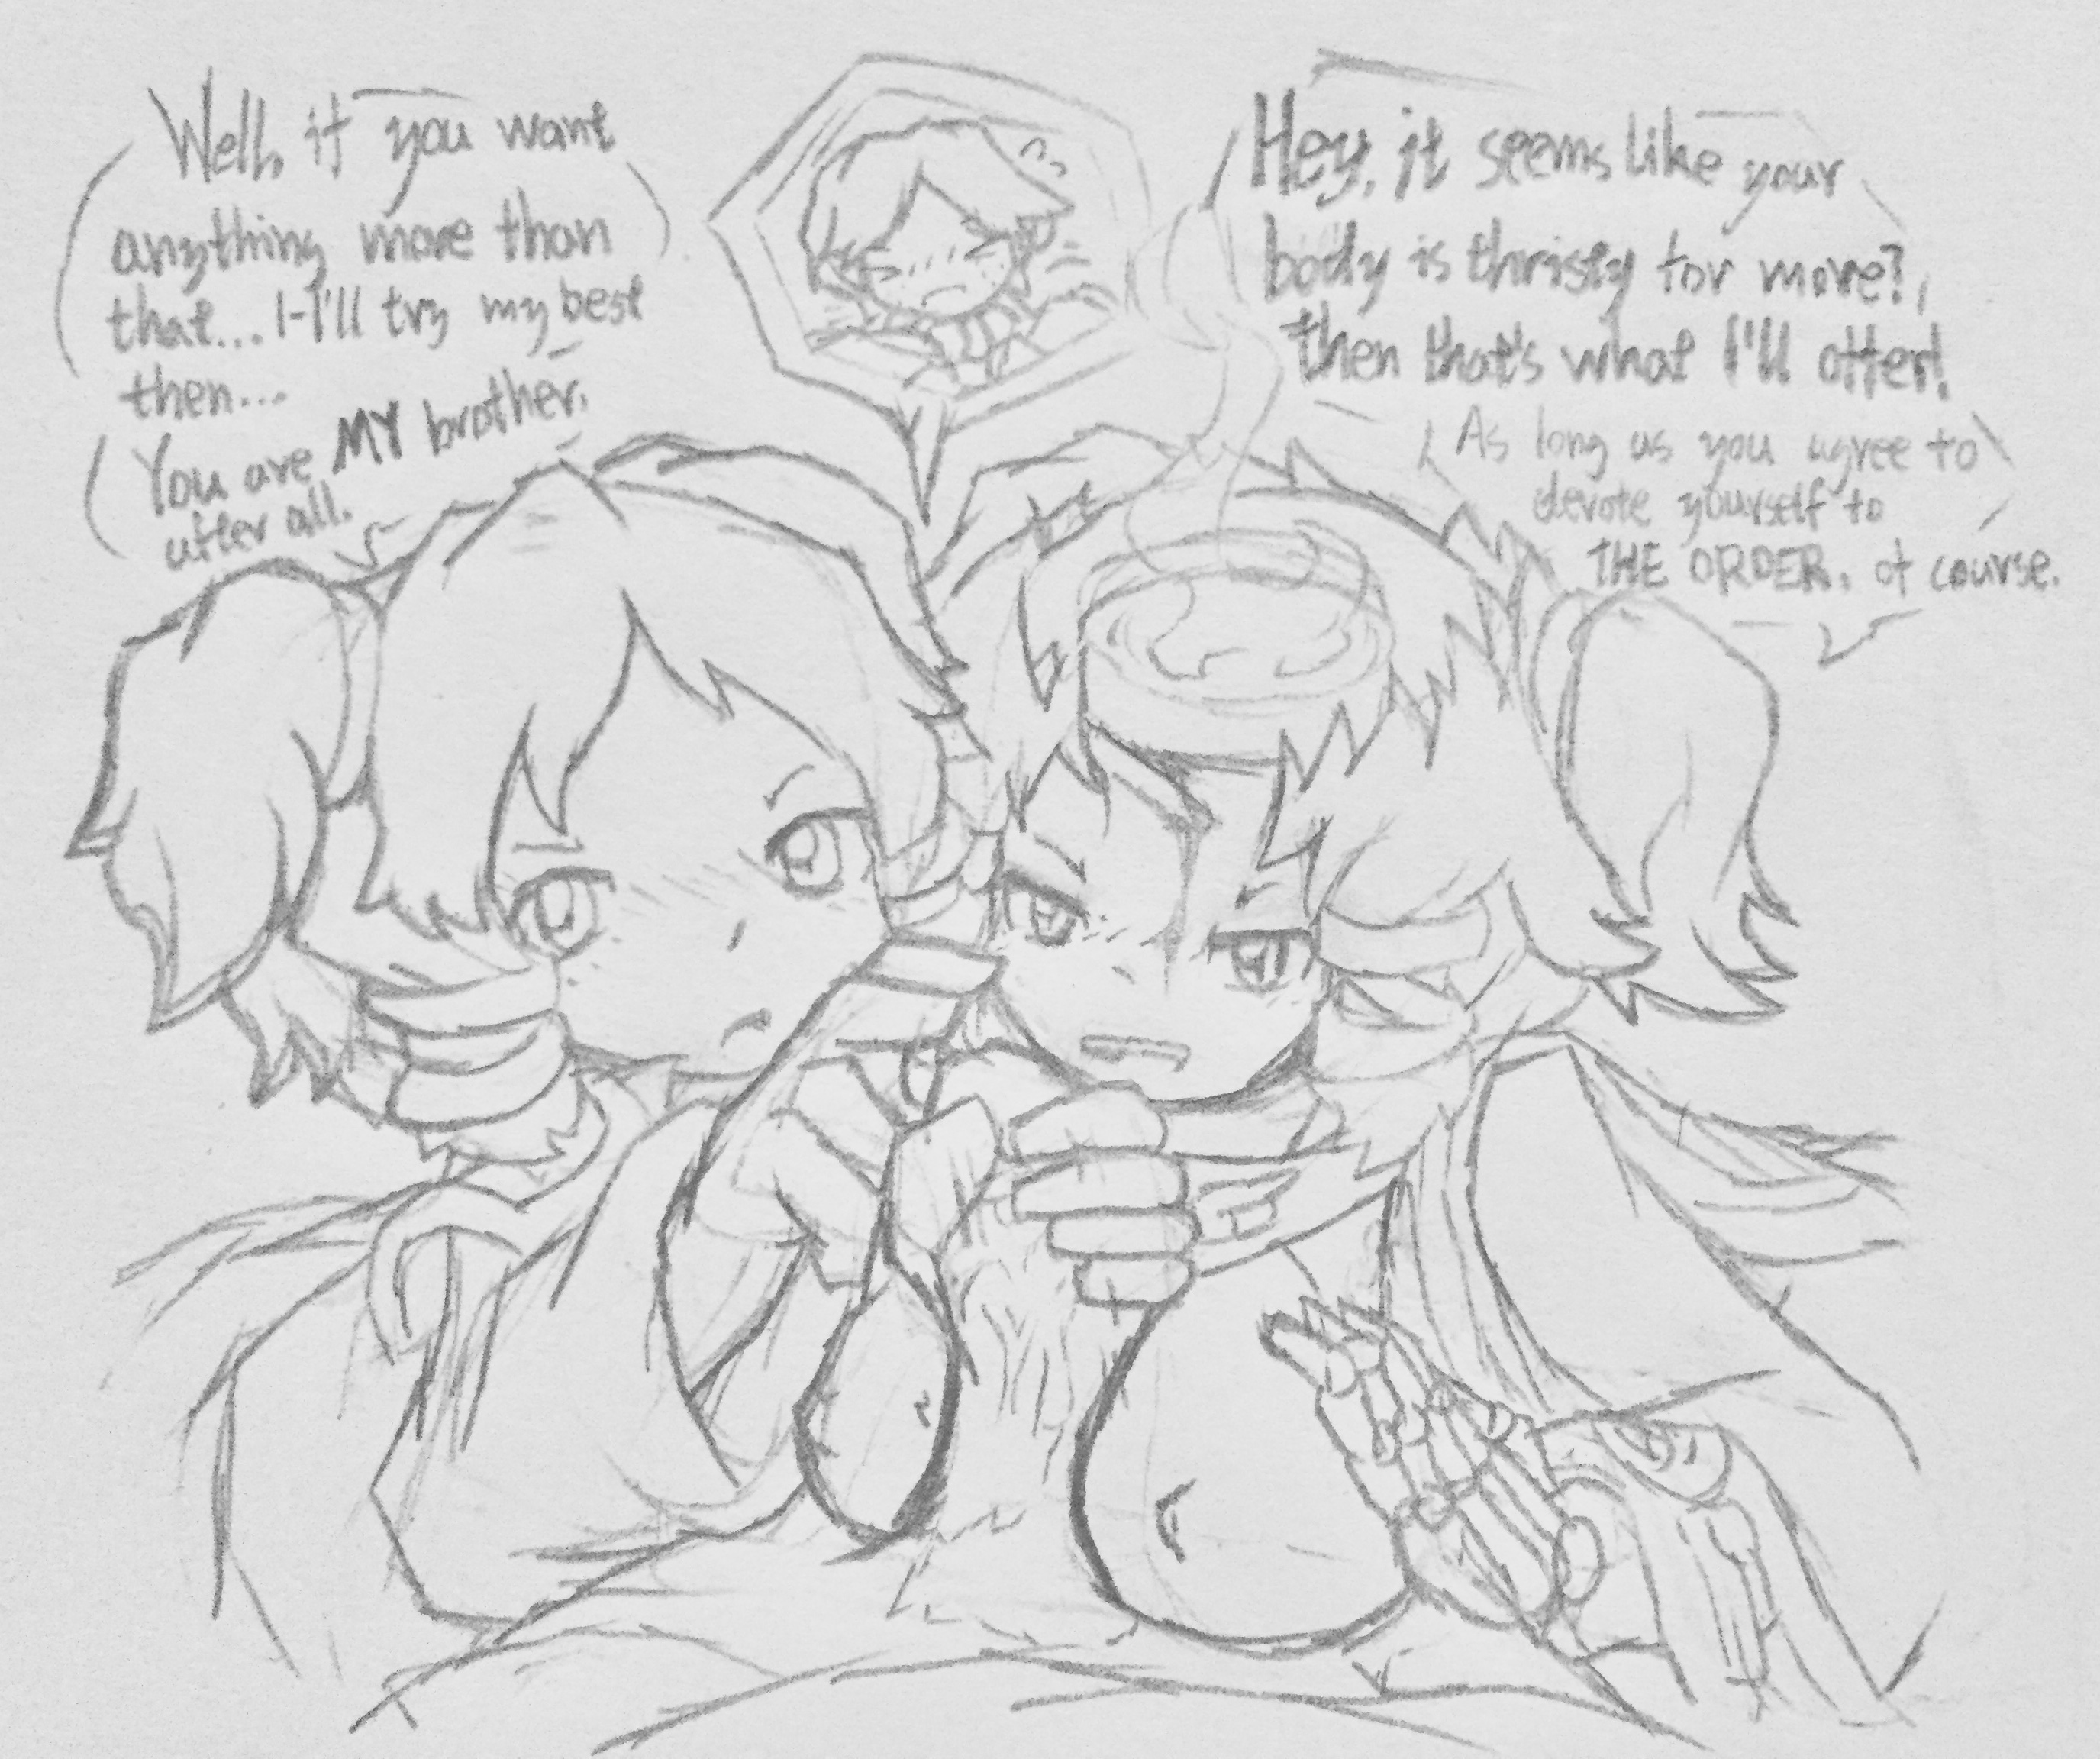 Well, if you want
anything more than
that... I-I'll try my best
then...
You are MY brother.
after all.
Hey, it seems like your
body is thristy for more?,
then that's what I'll offer!
As long as you agree to
devote yourself to
THE ORDER. of course.